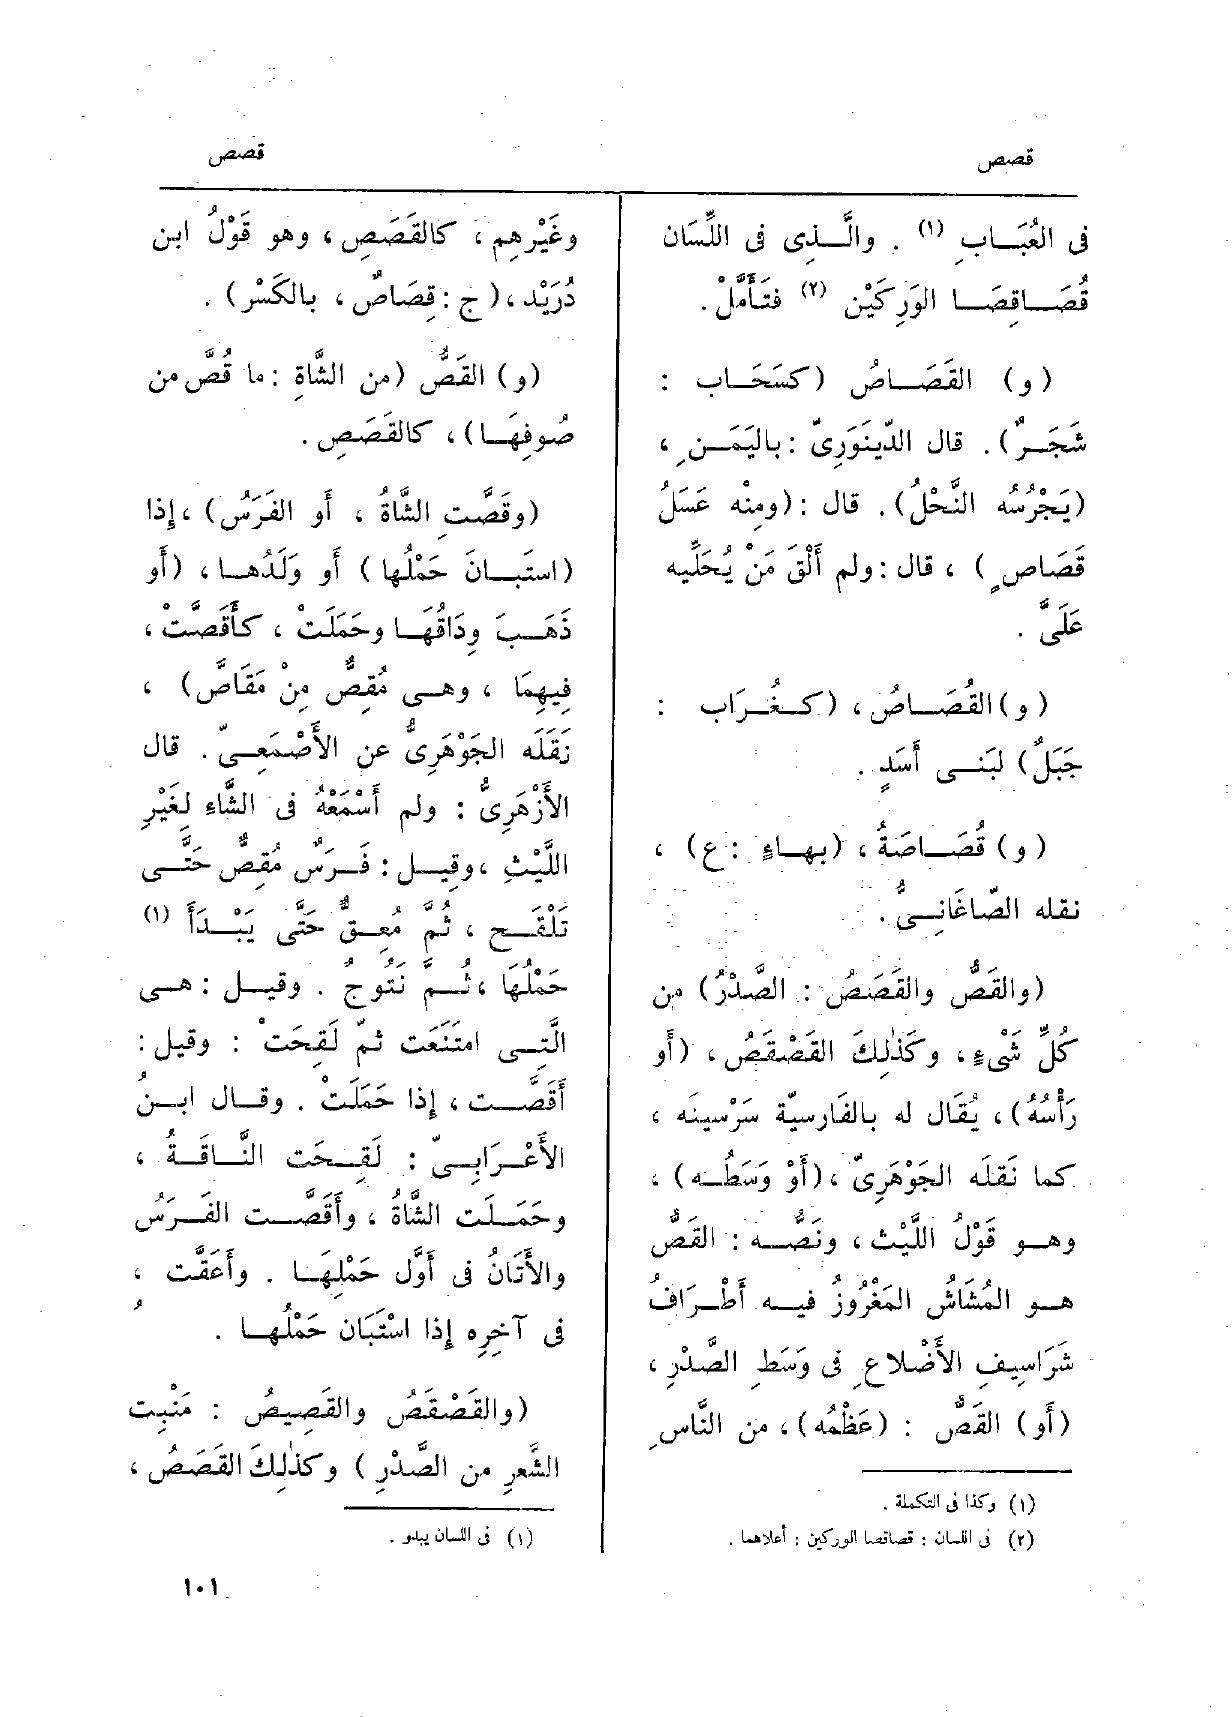 قصص
قصص
فى العُبَـابِ (١) . والَّـذِى فى اللِّسَان
قُصَـاقِصَـا الوَرِكَيْن (٢) فتَأَمَّلْ .
( و ) القَصَـاصُ (كسَحَـاب :
شَجَـرٌ) . قال الدِّينَوَرِىّ : باليَمَـنِ ،
(يَجْرُسُه النَّحْلُ) . قال : (ومِنْه عَسَلُ
قَصَاصٍ ) ، قال : ولم أَلْقَ مَنْ يُحَلِّيه
عَلَىَّ .
( و ) القُصَـاصُ ، (كـغُـرَاب :
جَبَلٌ) لبَنـى أَسَدٍ .
( و ) قُصَـاصَةُ ، (بهـاءٍ : ع) ،
نقله الصّاغَانـىُّ .
(والقَصُّ والقَصَصُ : الصَّدْرُ) من
كُلِّ شَىْءٍ ، وكَذٰلِكَ القَصْقَصُ ، (أَو
رَأْسُهُ) ، يُقَال له بالفَارسِيّة سَرْسِينَه ،
كما نَقَلَه الجَوْهَرِىّ ، (أَوْ وَسَطُـه) ،
وهـو قَوْلُ اللَّيْث ، ونَصُّـه : القَصُّ
هـو المُشَاشُ المَغْرُوزُ فيـه أَطْـرَافُ
شَرَاسِيفِ الأَضْلاعِ فى وَسَطِ الصَّدْرِ ،
(أَو) القَصُّ : (عَظْمُه) ، من النَّاسِ
(١) وكذا فى التكملة .
(٢) فى اللسان : قصاقصا الوركين : أعلاهما .
وغَيْرِهِم ، كالقَصَصِ ، وهو قَوْلُ ابن
دُرَيْد ، ( ج : قِصَاصٌ ، بالكَسْر) .
( و ) القَصُّ (من الشَّاةِ : ما قُصَّ من
صُوفِهَـا) ، كالقَصَصِ .
(وقَصَّتِ الشَّاةُ ، أَو الفَرَسُ) ، إِذا
(استَبـانَ حَمْلُها ) أَو وَلَدُهـا ، (أَو
ذَهَـبَ ودَاقُهَـا وحَمَلَتْ ، كأَقَصَّتْ ،
فِيهِمَا ، وهـى مُقِصٌّ مِنْ مَقَاصَّ ) ،
نَقَلَه الجَوْهَرِىُّ عن الأَصْمَعـىّ . قال
الأَزْهَرِىُّ : ولم أَسْمَعْهُ فى الشَّاءِ لِغَيْرِ
اللَّيْثِ ، وقيـل : فَـرَسٌ مُقِصٌّ حَتَّـى
تَلْقَـح ، ثُمَّ مُعِـقٌّ حَتَّى يَبْـدَأَ (١)
حَمْلُهَا ، ثُـمَّ نَتُوجٌ . وقيـل : هـى
الَّتِـى امتَنَعَت ثمّ لَقِحَتْ : وقيل :
أَقَصَّـت ، إِذا حَمَلَتْ . وقـال ابـنُ
الأَعْـرَابِـىّ : لَقِـحَت النَّـاقَـةُ ،
وحَمَـلَت الشَّاةُ ، وأَقَصَّـت الفَـرَسُ
والأَتَانُ فى أَوَّل حَمْلِهَـا . وأَعَقَّت ،
فى آخِرِه إِذا اسْتَبَان حَمْلُهـا .
(والقَصْقَصُ والقَصِيصُ : مَنْبِت
الشَّعرِ من الصَّدْرِ ) وكَذٰلِكَ القَصَصُ ،
(١) فى اللسان يبدو .
١٠١